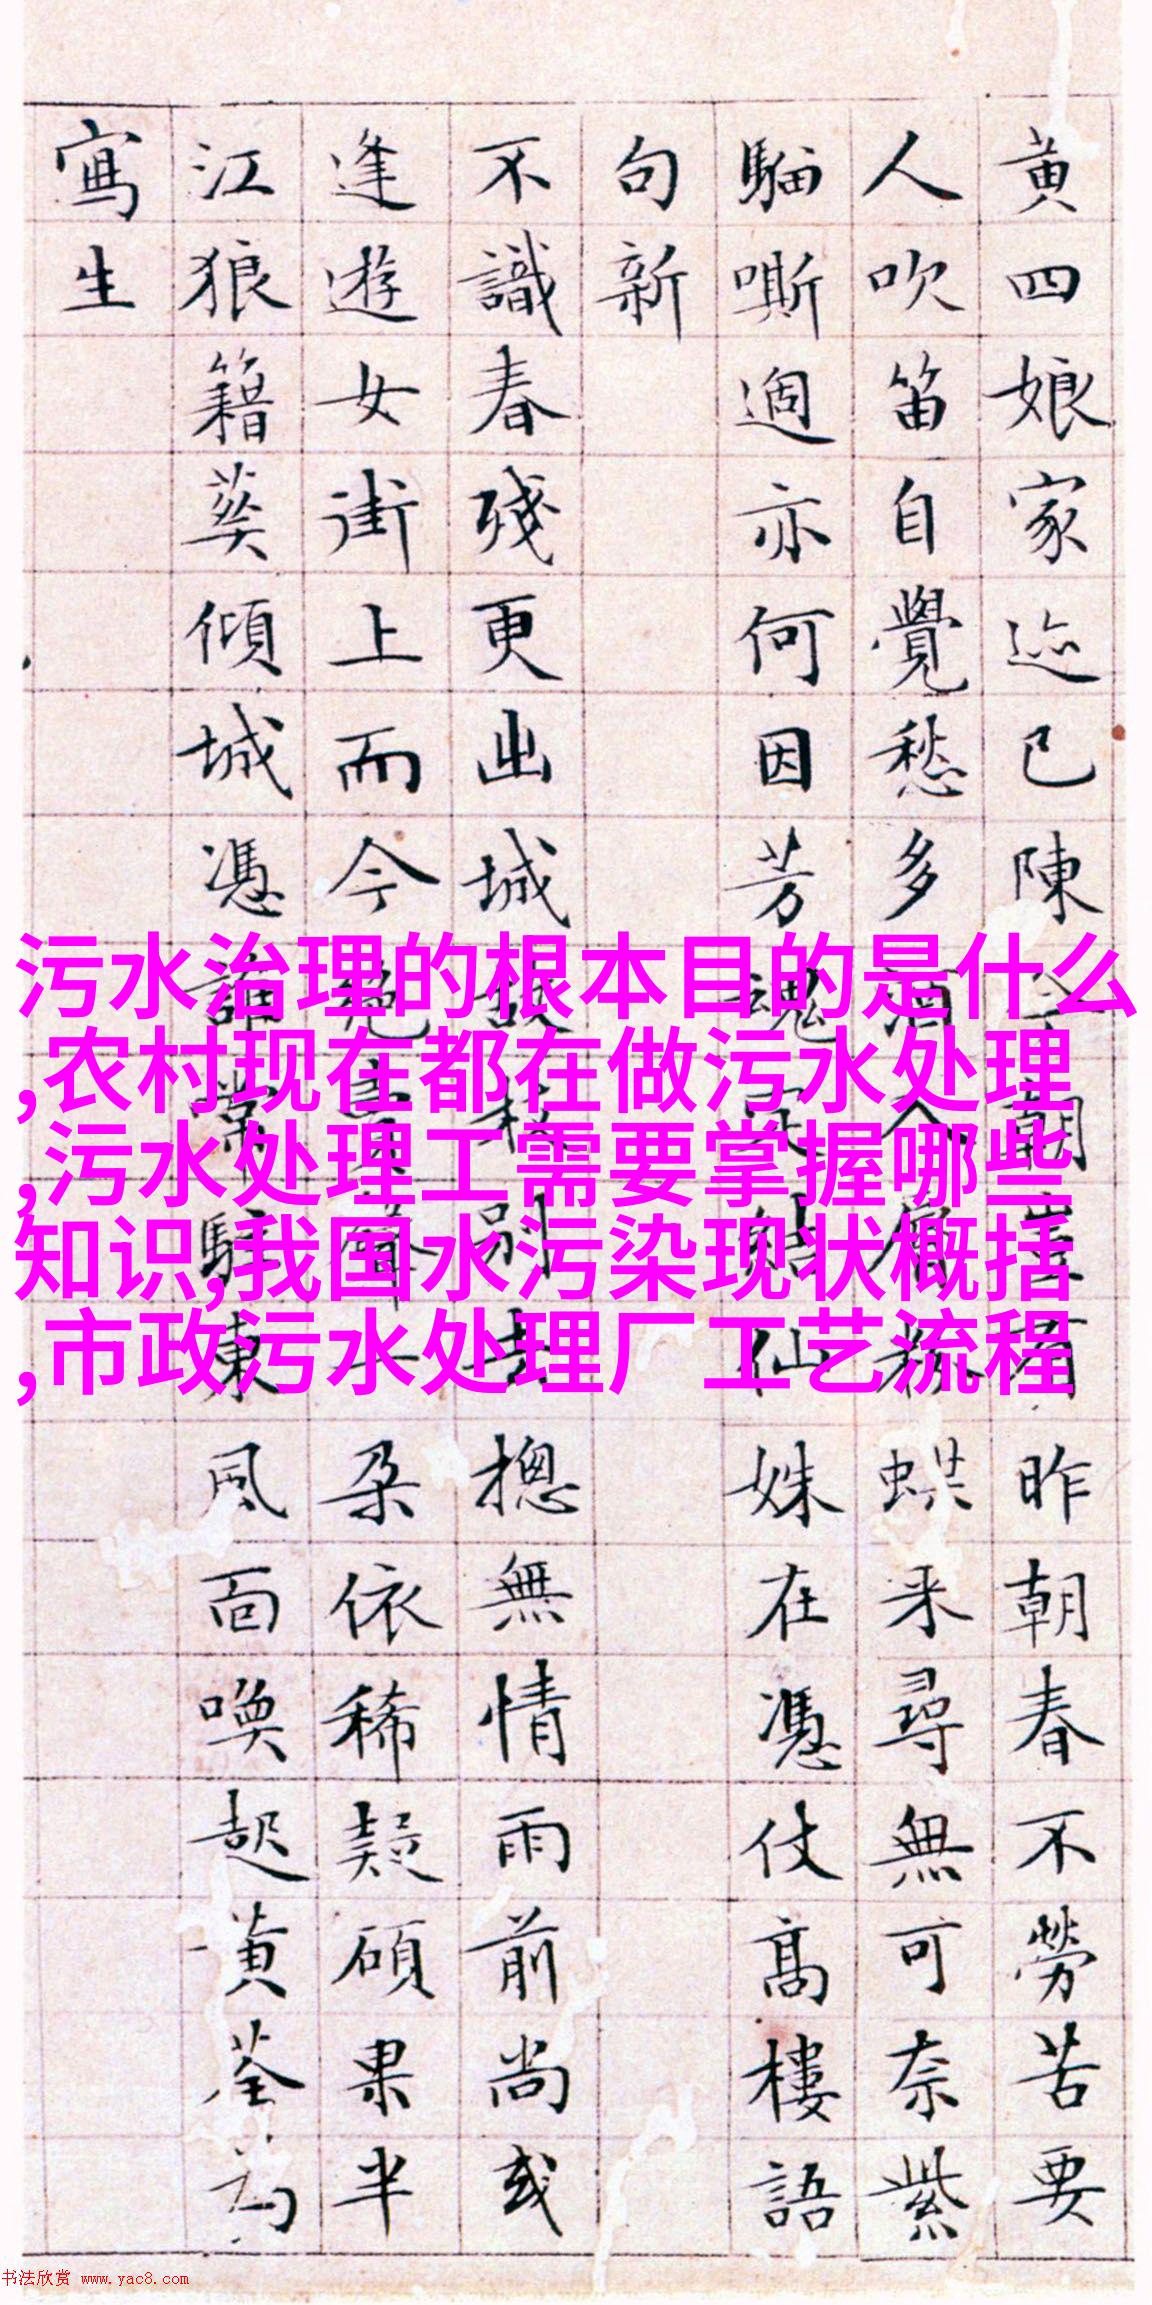 黄四娘家迹已陳朝有昨朝春不勞苦要
人吹笛自覺愁多酒來尋無可奈紫
騮嘶過亦何因芳魂仙姝在憑仗高樓語
句新
不識春殘更出城別去摠無情雨前尚或
逢遊女街上而今朵依稀疑碩果半
江狼籍葵傾城憑誰常駐東風面喚起黄荃為
寫生
污水治理的根本目的是什么
,农村现在都在做污水处理
,污水处理工需要掌握哪些
知识,我国水污染现状概括
,市政污水处理厂工艺流程
书法欣赏 www.yac8.com